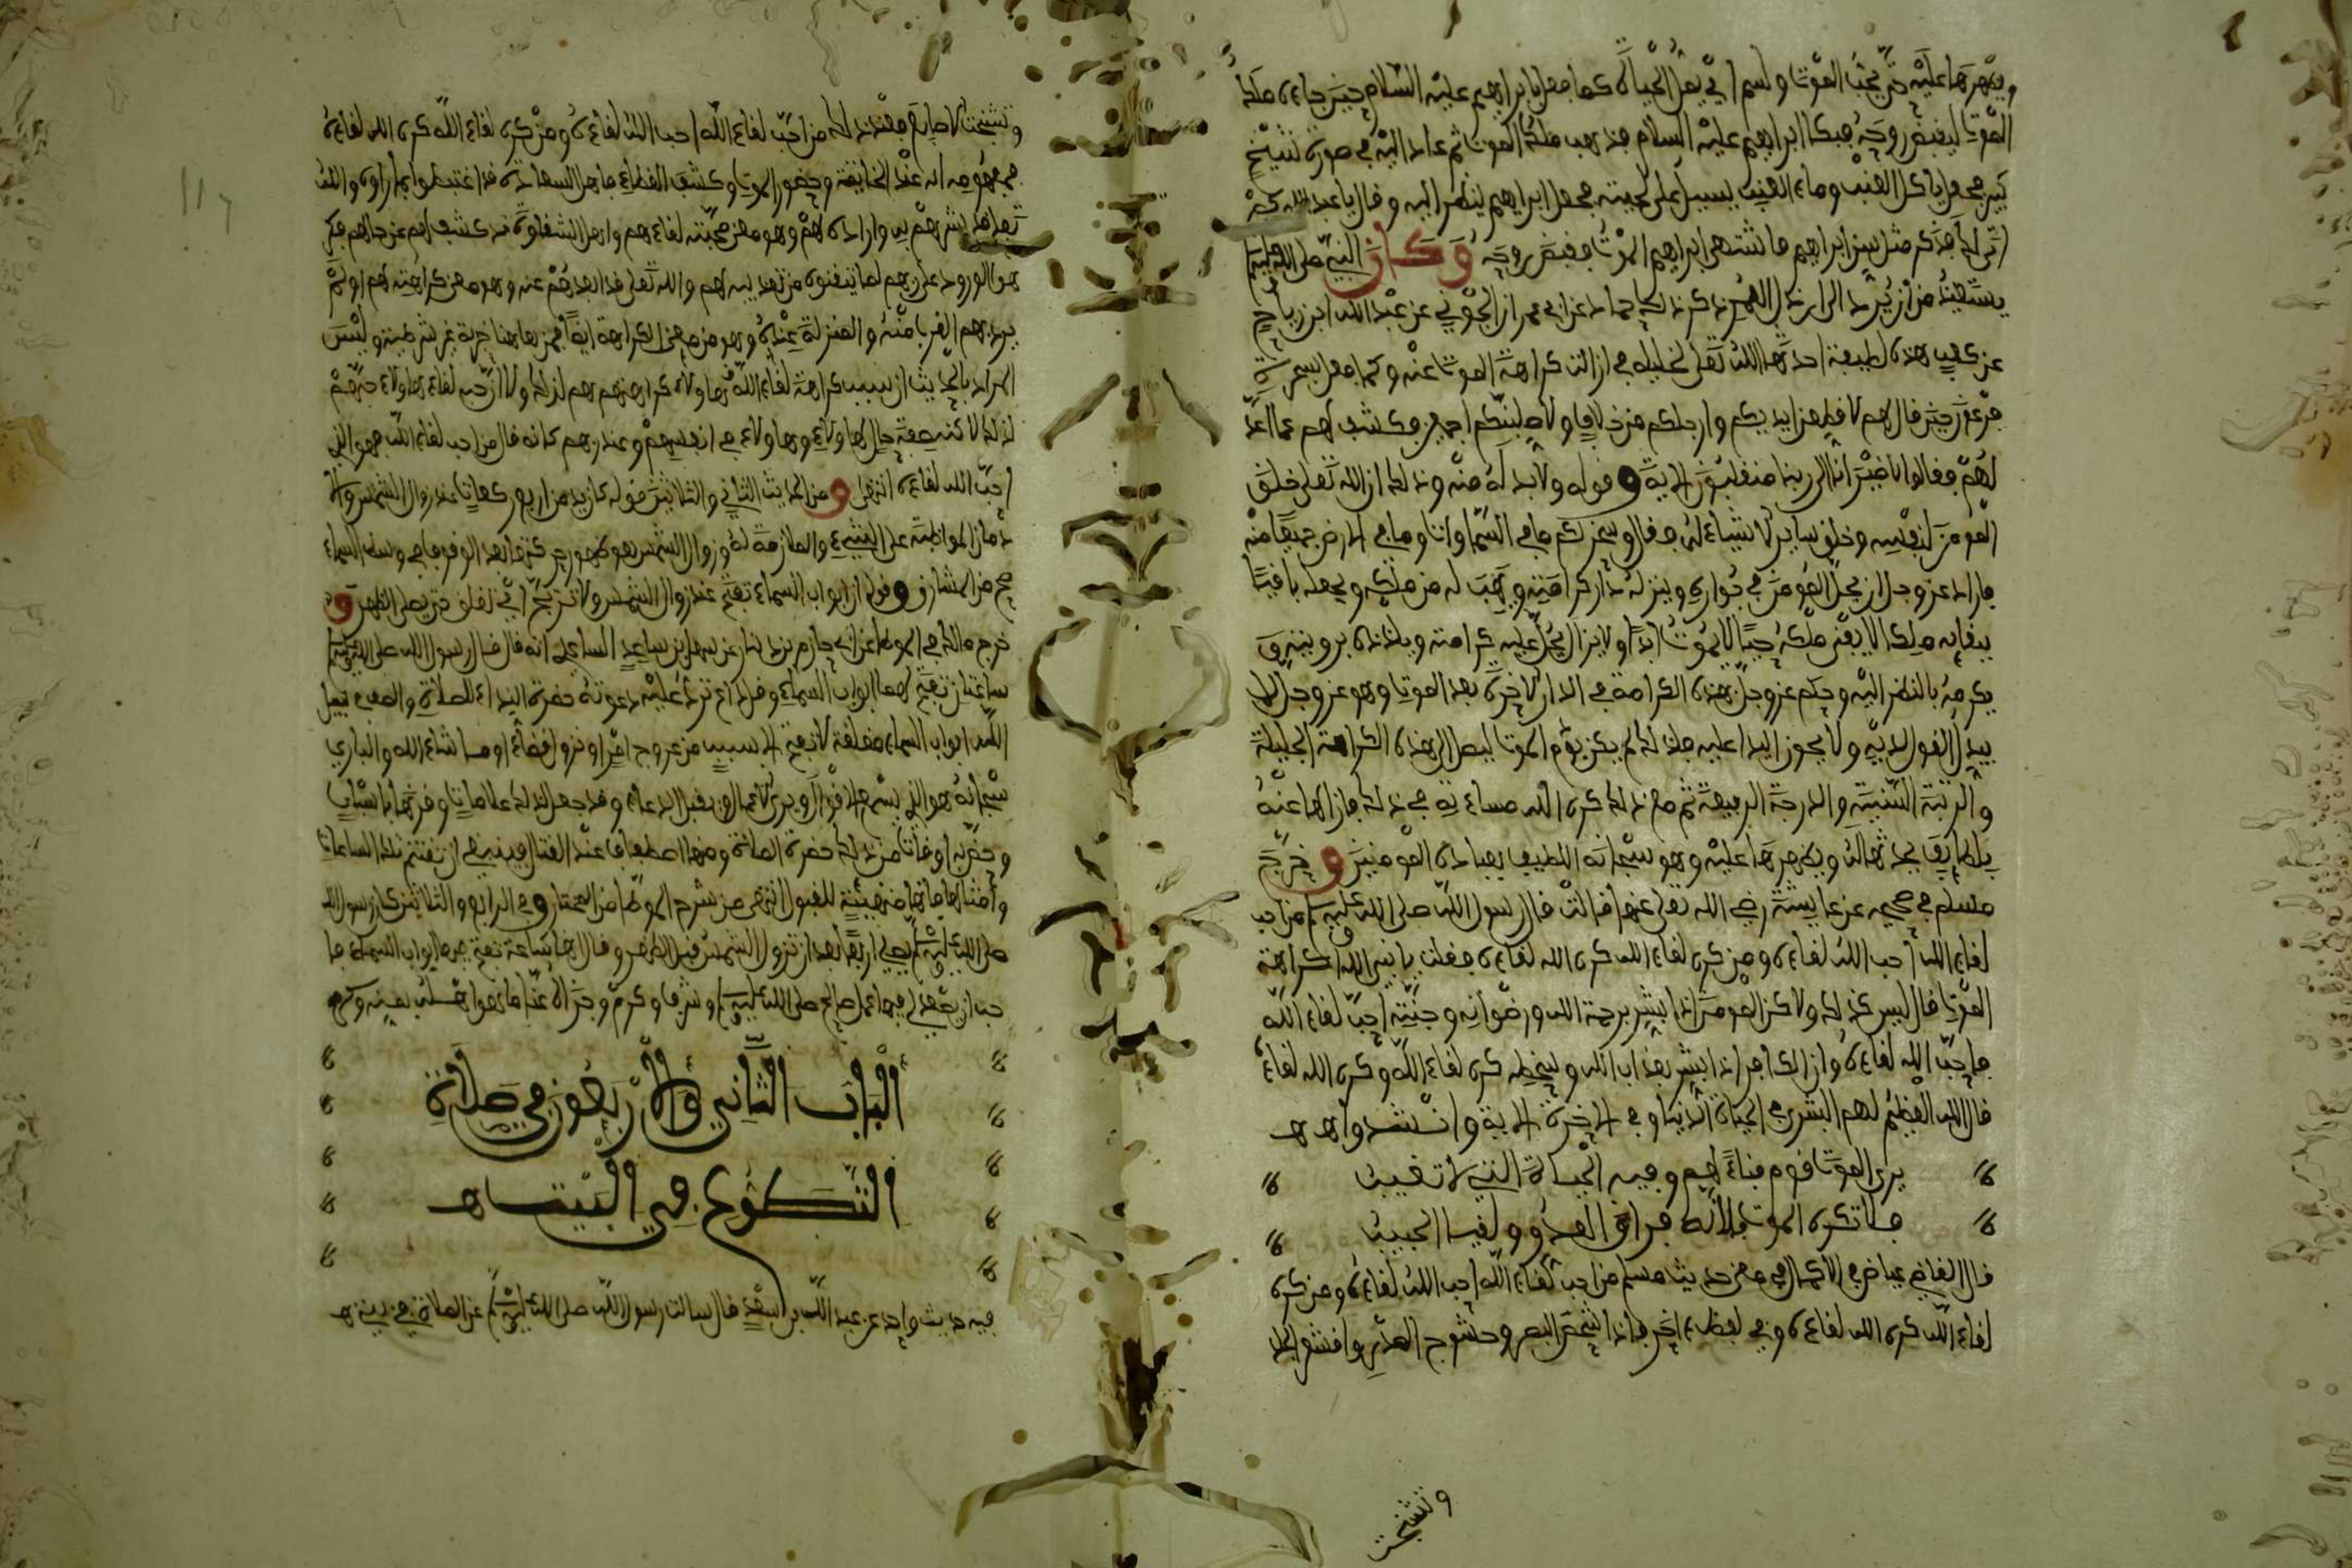 ويظهرها عليه حتى يحب الموت ولسم اي يقل الحياة كما فعل بابراهيم عليه السلام حين جاءه ملك
الموت ليقبض روحه فبكا ابراهيم عليه السلام فذهب ملك الموت ثم عاد اليه في صورة شيخ
كبير فجعل ياكل العنب وماء العنب يسيل على لحيته فجعل ابراهيم ينظر اليه وقال يا عبد الله كم
اتى لك فذكر مثل سن ابراهيم فاشتهى ابراهيم الموت فقبض روحه وكان النبي صلى الله عليه وسلم
يستعيذ من ان يرد الى ارذل العمر ذكر ذلك حماد عن ابي عمران الجوني عن عبد الله ابن رباح
عن كعب هذه لطيفة احدثها الله تعلى لخليله في ازالت كراهة الموت عنه وكما فعل بسحرة
فرعون حين قال لهم لاقطعن ايديكم وارجلكم من خلاف ولاصلبنكم اجمعين وكشف لهم عما اعد
لهم فقالوا لا ضير انا الى ربنا منقلبون الاية وقوله ولا بد له منه وذلك ان الله تعلى خلق
المومن لنفسه وخلق ساير الاشياء له فقال وسخر لكم ما في السماوات وما في الارض جميعا منه
فاراد عز وجل ان يحل المومن في جواره وينزله دار كرامته ويهب له من ملكه ويجعله باقيا
ببقايه ملكا لا يفنى ملكه حيا لا يموت ابدا ولا يزال يحل عليه كرامته ويلذذه برويته و
يكرمه بالنظر اليه وحكم عز وجل بهذه الكرامة في الدار الاخرة بعد الموت وهو عز وجل لا
يبدل القول لديه ولا يجوز البدا عليه فلذلك لم يكن بد من الموت ليصل الى هذه الكرامة الجليلة
والرتبة السنية والدرجة الرفيعة ثم مع ذلك كره الله مساءته في ذلك فازالها عنه
بلطايف يحدثها له ويظهرها عليه وهو سبحانه اللطيف بعباده المومنين وخرج
مسلم في صحيحه عن عايشة رضي الله تعلى عنها قالت قال رسول الله صلى الله عليه وسلم من احب
لقاء الله احب الله لقاءه ومن كره لقاء الله كره الله لقاءه فقلت يا نبي الله اكراهة
الموت قال ليس كذلك ولاكن المومن اذا بشر برحمة الله ورضوانه وجنته احب لقاء الله
فاحب الله لقاءه وان الكافر اذا بشر بعذاب الله وسخطه كره لقاء الله وكره الله لقاءه
قال الله العظيم لهم البشرى في الحياة الدنيا وفي الاخرة الاية وانشدوا هـ
يرى الموت قوم فناء لهم وفيه الحياة التي لا تغيب
فلا تكره الموت فلانه فراق العدو ولقيا الحبيب
قال القاضي عياض في الاكمال في معنى حديث مسلم من احب لقاء الله احب الله لقاءه ومن كره
لقاء الله كره الله لقاءه وفي لفظ اخر فاذا شخص البصر وحشرج الصدر واقشعر الجلد
وتشنجت
وتشنجت الاصابع فعند ذلك من احب لقاء الله احب الله لقاءه ومن كره لقاء الله كره الله لقاءه
فمفهومه انه عند الخاتمة وحضور الموت وكشف الغطاء فاهل السعادة قد اغتبطوا بما راوه والله
تعلى قد بشرهم به واراده لهم وهو معنى محبته لقاءهم واهل الشقاوة قد كشف لهم عن حالهم فكر
هوا الورود على ربهم لما تيقنوه من تعذيبه لهم والله تعلى قد ابعدهم عنه وهو معنى كراهته لهم او لم
يرد بهم القرب منه والمنزلة عنده وهو من معنى الكراهة ايضا فمن هاهنا خبرية غير شرطية وليس
المراد بالحديث ان سبب كراهة لقاء الله هاولاء كراهتهم هم لذلك ولا ان حب لقاء هاولاء حبهم
لذلك لاكنه صفة حال هاولاء وهاولاء في انفسهم وعند ربهم كانه قال من احب لقاء الله فهو الذي
احب الله لقاءه انتهى ومن الحديث الثاني والثلاثين قوله كان يدمن اربع ركعات عند زوال الشمس والا
دمان المواظبة على الشيء والملازمة له وزوال الشمس هو ظهور حركتها بعد الوقوف في وسط السماء
صح من المشارق وقوله ان ابواب السماء تفتح عند زوال الشمس ولا ترتج اي تغلق حتى يصلى الظهر و
خرج مالك في الموطا عن ابي حازم بن دينار عن سهل بن ساعد الساعدي انه قال قال رسول الله صلى الله عليه وسلم
ساعتان تفتح لهما ابواب السماء وقل داع ترد عليه دعوته حضرة النداء للصلاة والصف في سبيل
الله ابواب السماء مغلقة لا تفتح الا بسبب من عروج امر او نزول قضاء او ما شاء الله والباري
سبحانه هو الذي يسمع الاقوال ويرى الاعمال ويقبل الدعاء وقد جعل لذلك علامات وقرنها باسباب
وخصه باوقات من ذلك حضرة الصلاة ومنها اصطفاف عند القتال فينبغي ان تغتنم تلك الساعات
وامثالها فانها متهيئة للقبول انتهى من شرح الموطا من المختار وفي الرابع والثلاثين كان رسول الله
صلى الله عليه وسلم يصلي اربعا بعد ان تزول الشمس قبل الظهر وقال انها ساعة تفتح فيها ابواب السماء فا
حب ان يصعد لي فيها عمل صالح صلى الله عليه وسلم وشرف وكرم وجزاه عنا ما هو اهله بمنه وكرمه
الباب الثاني والاربعون في صلاة
التطوع في البيت هـ
فيه حديث واحد عن عبد الله بن سعد قال سالت رسول الله صلى الله عليه وسلم عن الصلاة في بيتي هـ